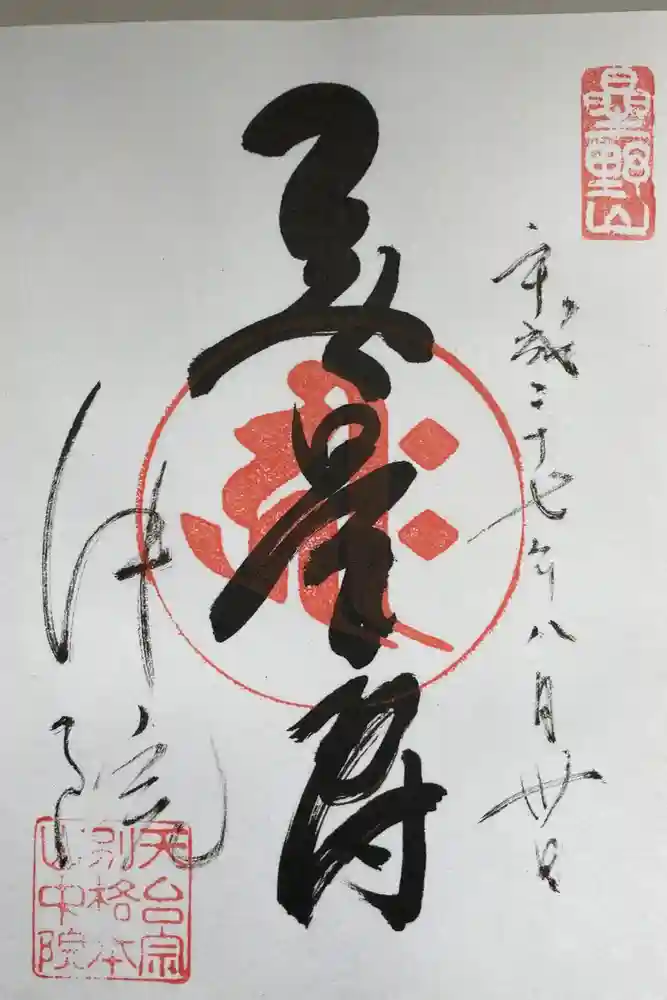 星野山
平成二十七年八月廿日
無量寿
中院
天台宗
別格本
山中院